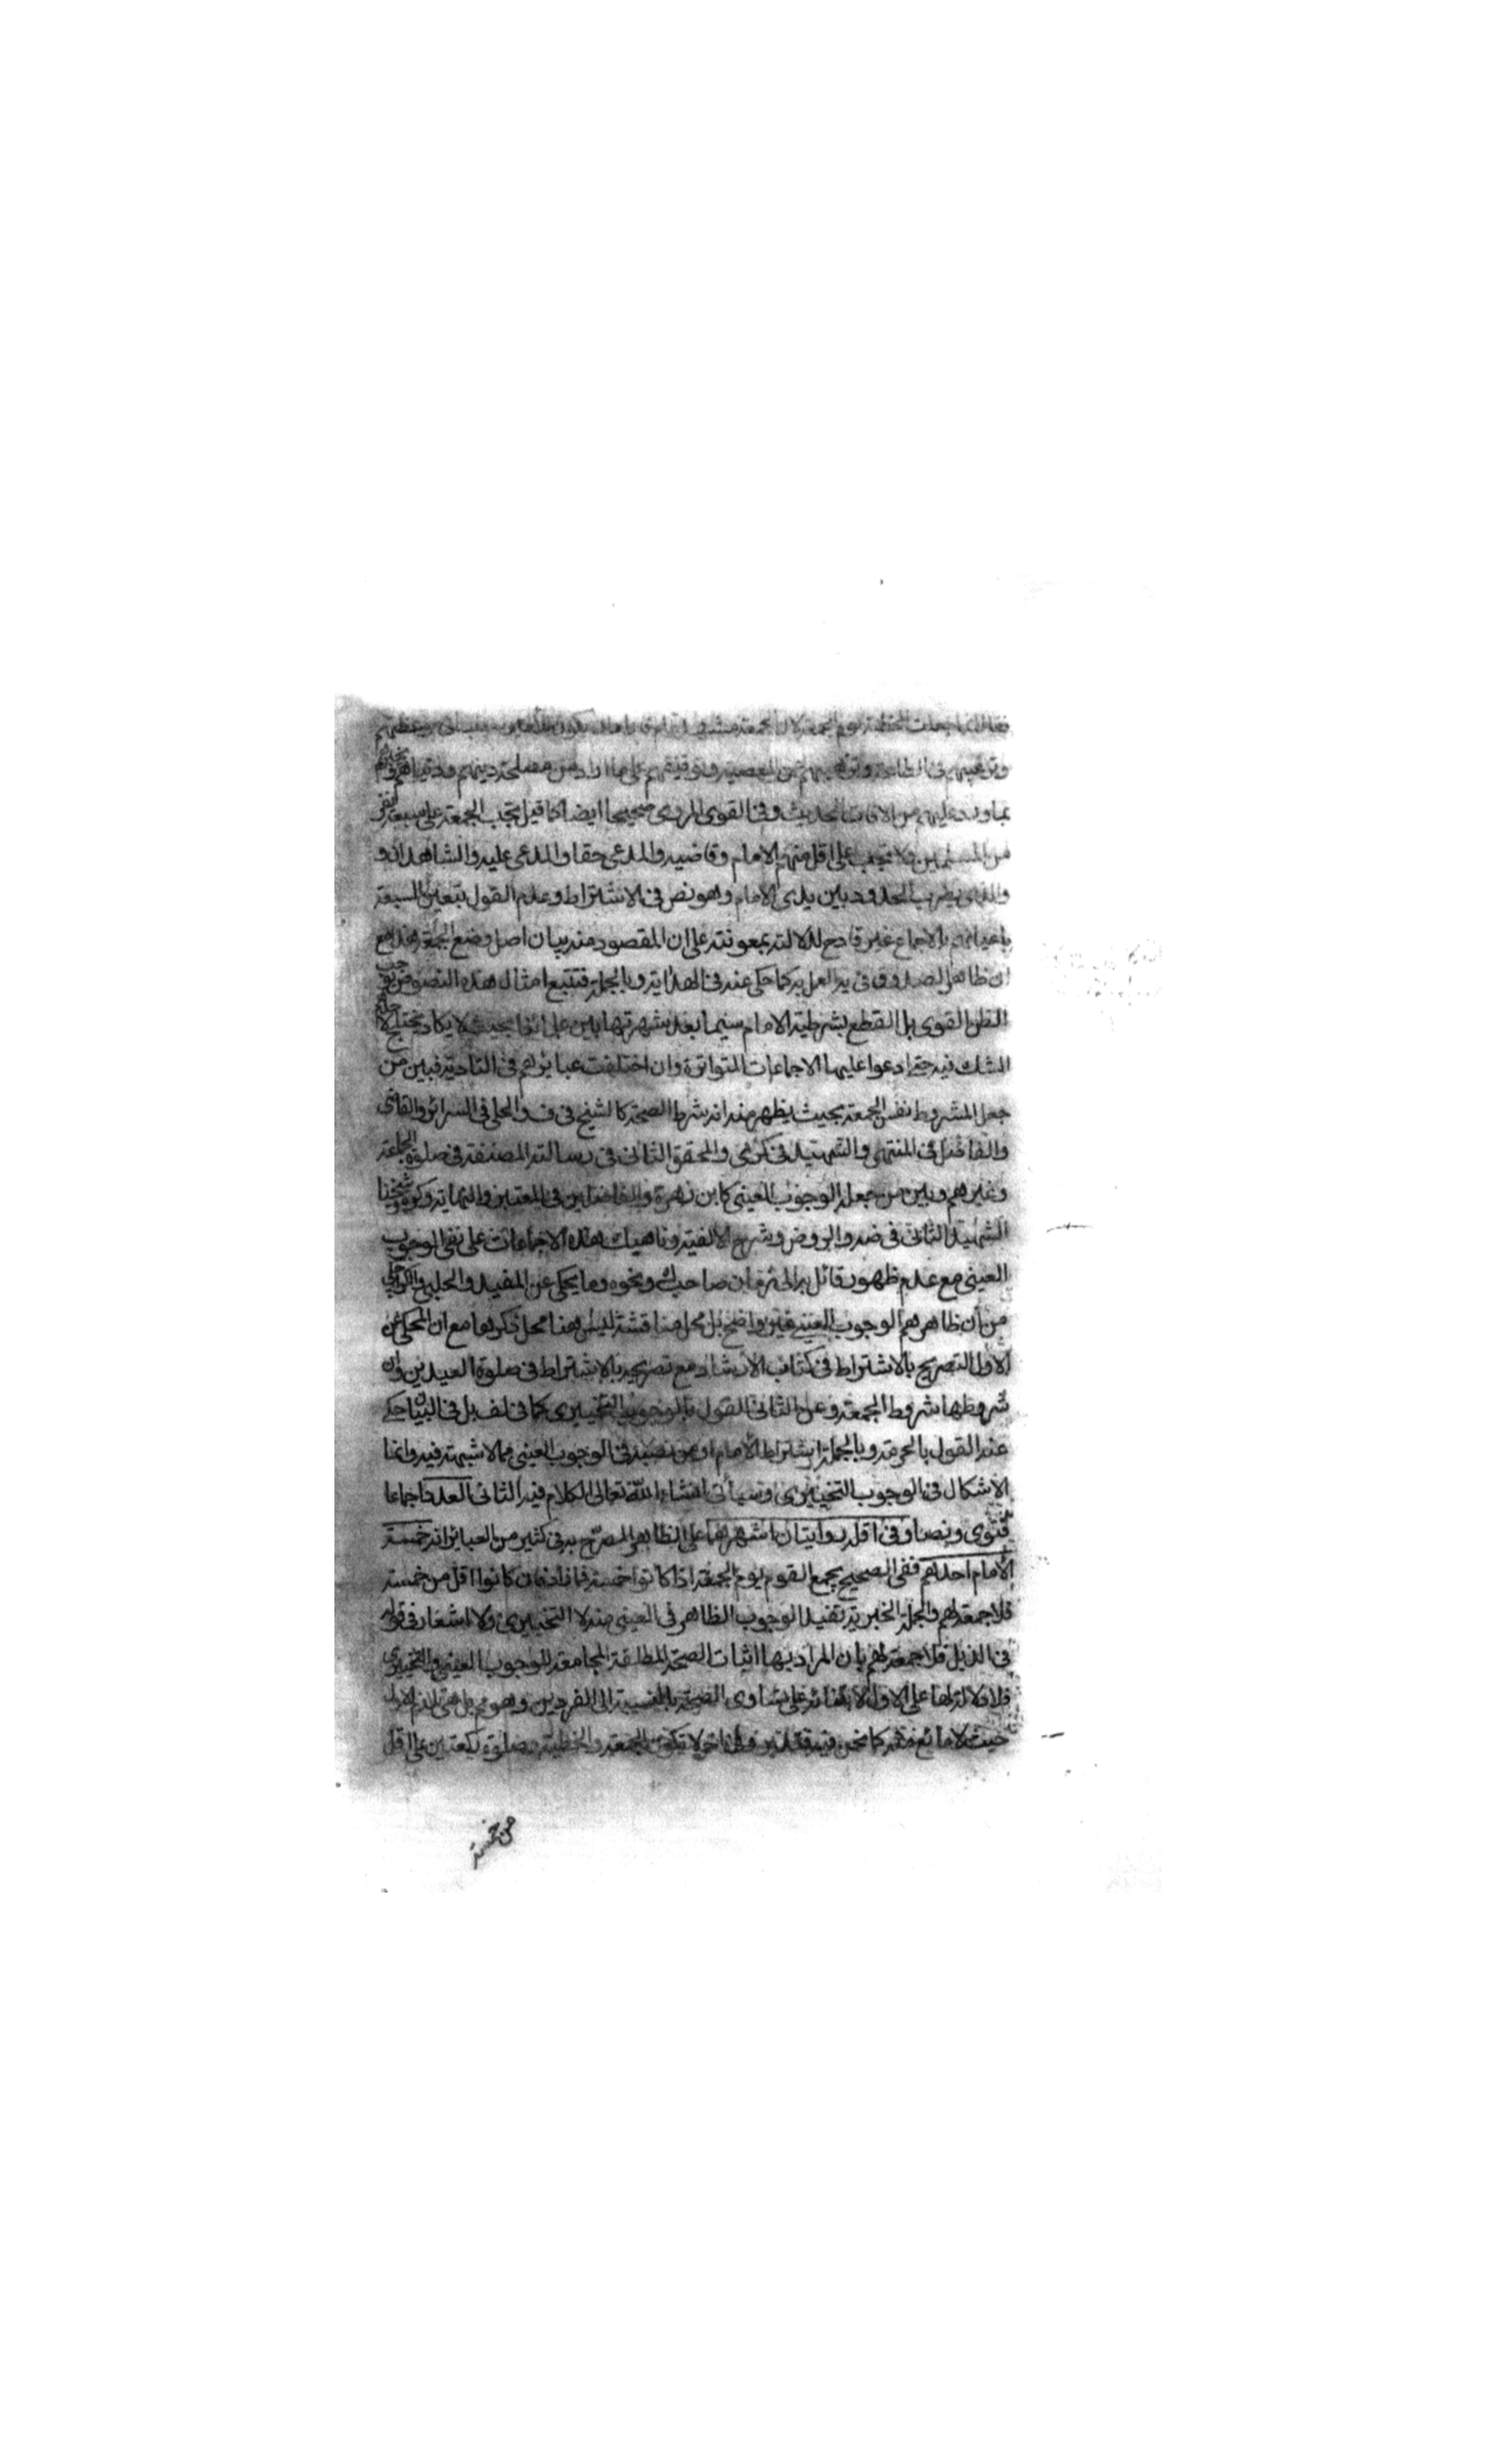 فقال انما جعلت الخطبة يوم الجمعة لان الجمعة مشهد
وترغيبهم فى الطاعة وترهيبهم من المعصية وتوقيفهم على ما اراد من مصلحة دينهم ودنياهم ويخبرهم
بما ورد عليهم من الافات الحديث وفى القوى المروى صحيحا ايضا كما قيل تجب الجمعة على سبعة نفر
من المسلمين ولا تجب على اقل منهم الامام وقاضيه والمدعى حقا والمدعى عليه والشاهدان و
والذى يضرب الحدود بين يدى الامام وهو نص فى الاشتراط وعدم القول بتعين السبعة
باعيانهم بالاجماع غير قادح لدلالته بمعونته على ان المقصود منه بيان اصل وضع الجمعة هذا مع
ان ظاهر الصدوق فى يه العمل به كما حكى عنه فى الهداية وبالجملة فتتبع امثال هذه النصوص يوجب
الظن القوى بل القطع بشرطية الامام سيما بعد شهرتها بين علمائنا بحيث لا يكاد يختلج
الشك فيه حتى ادعوا عليها الاجماعات المتواترة وان اختلفت عبائرهم فى التادية فبين من
جعل المشروط نفس الجمعة بحيث يظهر منه انه شرط الصحة كالشيخ فى ف والحلى فى السرائر والقاضى
والفاضل فى المنتهى والشهيد فى كرى والمحقق الثانى فى رسالته المصنفة فى صلوة الجماعة
وغيرهم وبين من جعله الوجوب العينى كابن زهرة والفاضلين فى المعتبر والنهاية وكره وشيخنا
الشهيد الثانى فى ضه والروض وشرح الالفية وناهيك هذه الاجماعات على نفى الوجوب
العينى مع عدم ظهور قائل به الى زمان صاحب ك ونحوه وما يحكى عن المفيد والحلبى والكراجكى
من ان ظاهرهم الوجوب العينى غير واضح بل محل مناقشة ليس هنا محل ذكرها مع ان المحكى عن
الاول التصريح بالاشتراط فى كتاب الارشاد مع تصريحه بالاشتراط فى صلوة العيدين وان
شروطها شروط الجمعة وعن الثانى القول بالوجوب التخييرى كما فى لف بل فى البيان حكى
عنه القول بالحرمة وبالجملة اشتراط الامام او من نصبه فى الوجوب العينى مما لا شبهة فيه وانما
الاشكال فى الوجوب التخييرى وسيأتى انشاء الله تعالى الكلام فيه الثانى العدد اجماعا
فتوى ونصا وفى اقله روايتان اشهرهما على الظاهر المصرح به فى كثير من العبائر انه خمسة
الامام احدهم ففى الصحيح يجمع القوم يوم الجمعة اذا كانوا خمسة فما زاد فان كانوا اقل من خمسة
فلا جمعة لهم والجملة الخبرية تفيد الوجوب الظاهر فى العينى منه لا التخييرى ولا اشعار فى قوله
فى الذيل فلا جمعة لهم بان المراد بها اثبات الصحة المطلقة المجامعة للوجوب العينى والتخييرى
فلا دلالة لها على الاول لابتنائه على تساوى الصحة بالنسبة الى الفردين وهو مم بل هى تلازم الاول
حيث لا مانع منه كما نحن فيه لا تكون الجمعة والخطبة وصلوة ركعتين على اقل
من خمسة